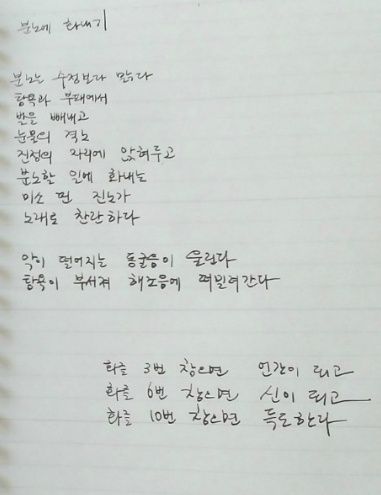 분노에 화내기
분노는 수정보다 맑다
침묵과 부패에서
발을 빼내고
눈물의 격노
진정의 자리에 앉혀두고
분노할 일에 화내는
미소 띤 진노가
노래로 찬란하다
악이 떨어지는 동굴음이 울린다
침묵이 부서져 해조음에 떠밀려간다
화를 3번 참으면 인간이 되고
화를 6번 참으면 신이 되고
화를 10번 참으면 득도한다